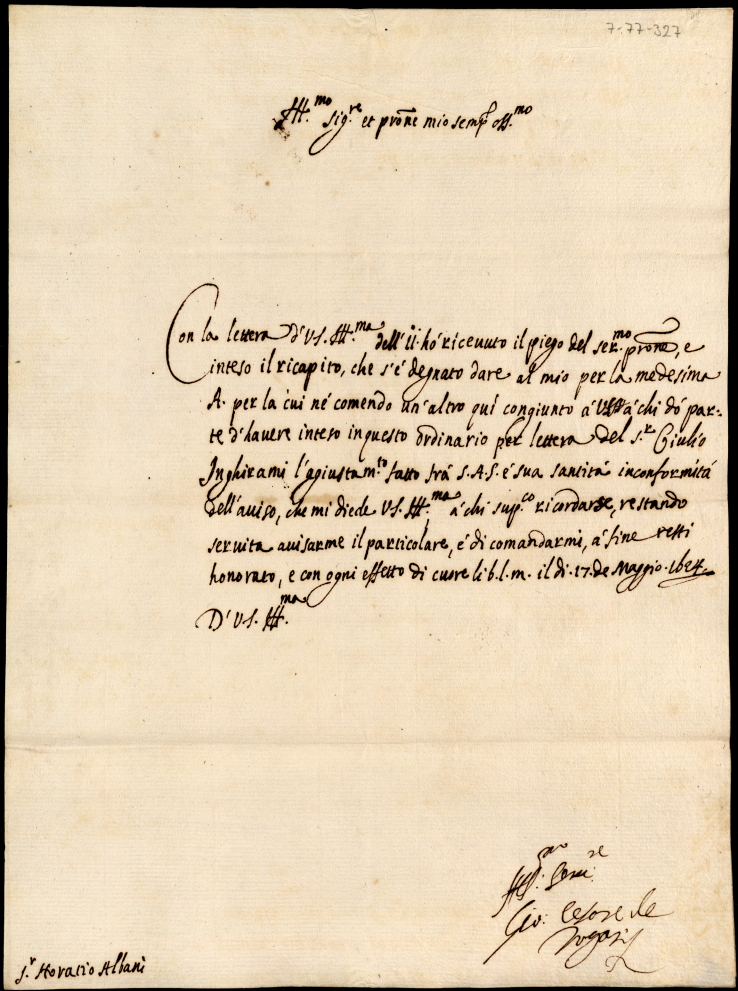 7-77-327
Ill.mo Sig.re et prone mio semp. oss.mo
Con la lettera d'V.S. Ill.ma dell'ii. hò riceuuto il piego del ser.mo prone, e
inteso il ricapito, che s'è degnato dare al mio per la medesima
A. per la cui nè comendo un'altro quì congiunto à VSIll. à chi dò par-
te d'hauere inteso in questo ordinario per lettera del s.r Giulio
Inghirami l'agiustam.to fatto frà S.A.S. è sua santità inconformità
dell'auiso, che mi diede V.S. Ill.ma à chi sup.co ricordarse, restando
seruita auisarme il particolare, è di comandarmi, à fine resti
honorato, e con ogni effetto di cuore li b.l.m. il di .17. de Maggio .1624.
D'V.S. Ill.ma
Aff. Serui.re
Gio: Cesare de
S.r Horatio Albani